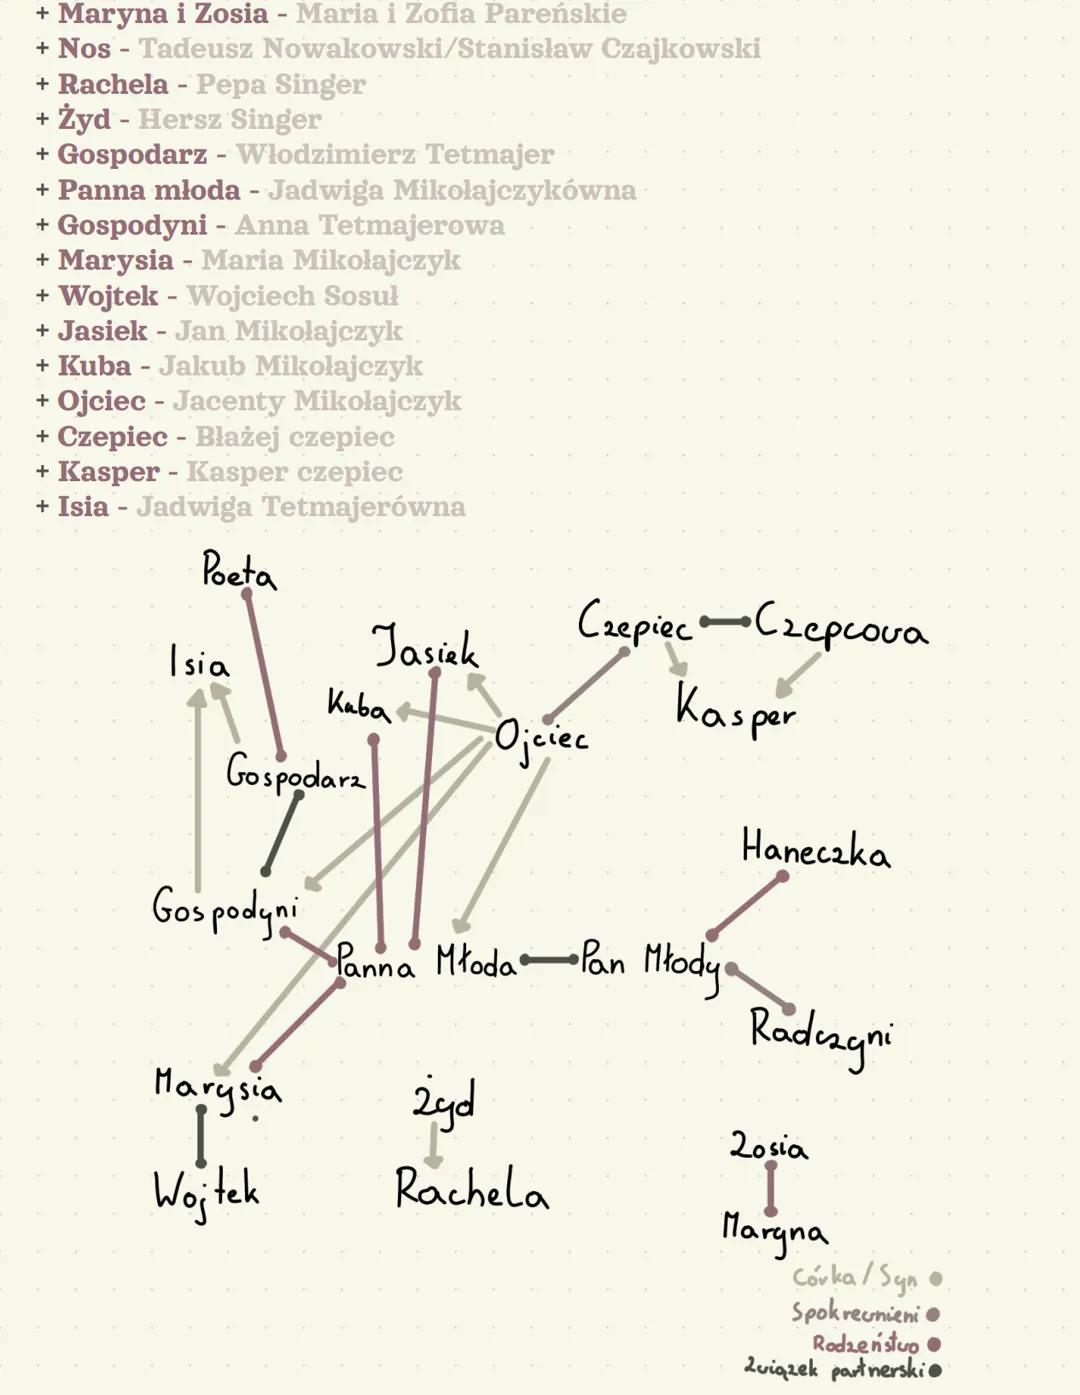 + Maryna i Zosia - Maria i Zofia Pareńskie
+ Nos - Tadeusz Nowakowski/Stanisław Czajkowski
+ Rachela - Pepa Singer
+ Żyd - Hersz Singer
+ Gospodarz - Włodzimierz Tetmajer
+ Panna młoda - Jadwiga Mikołajczykówna
+ Gospodyni - Anna Tetmajerowa
+ Marysia - Maria Mikołajczyk
+ Wojtek - Wojciech Sosuł
+ Jasiek - Jan Mikołajczyk
+ Kuba - Jakub Mikołajczyk
+ Ojciec - Jacenty Mikołajczyk
+ Czepiec - Błażej czepiec
+ Kasper - Kasper czepiec
+ Isia - Jadwiga Tetmajerówna
Poeta
Czepiec
Czepcova
Isia
Jasiek
Kuba
Kasper
Ojciec
Gospodarz
Haneczka
Gospodyni
Panna Młoda
Pan Młody
Radczyni
Marysia
Żyd
Zosia
Wojtek
Rachela
Maryna
Córka/Syn
Spokrewnieni
Rodzeństwo
Związek partnerski